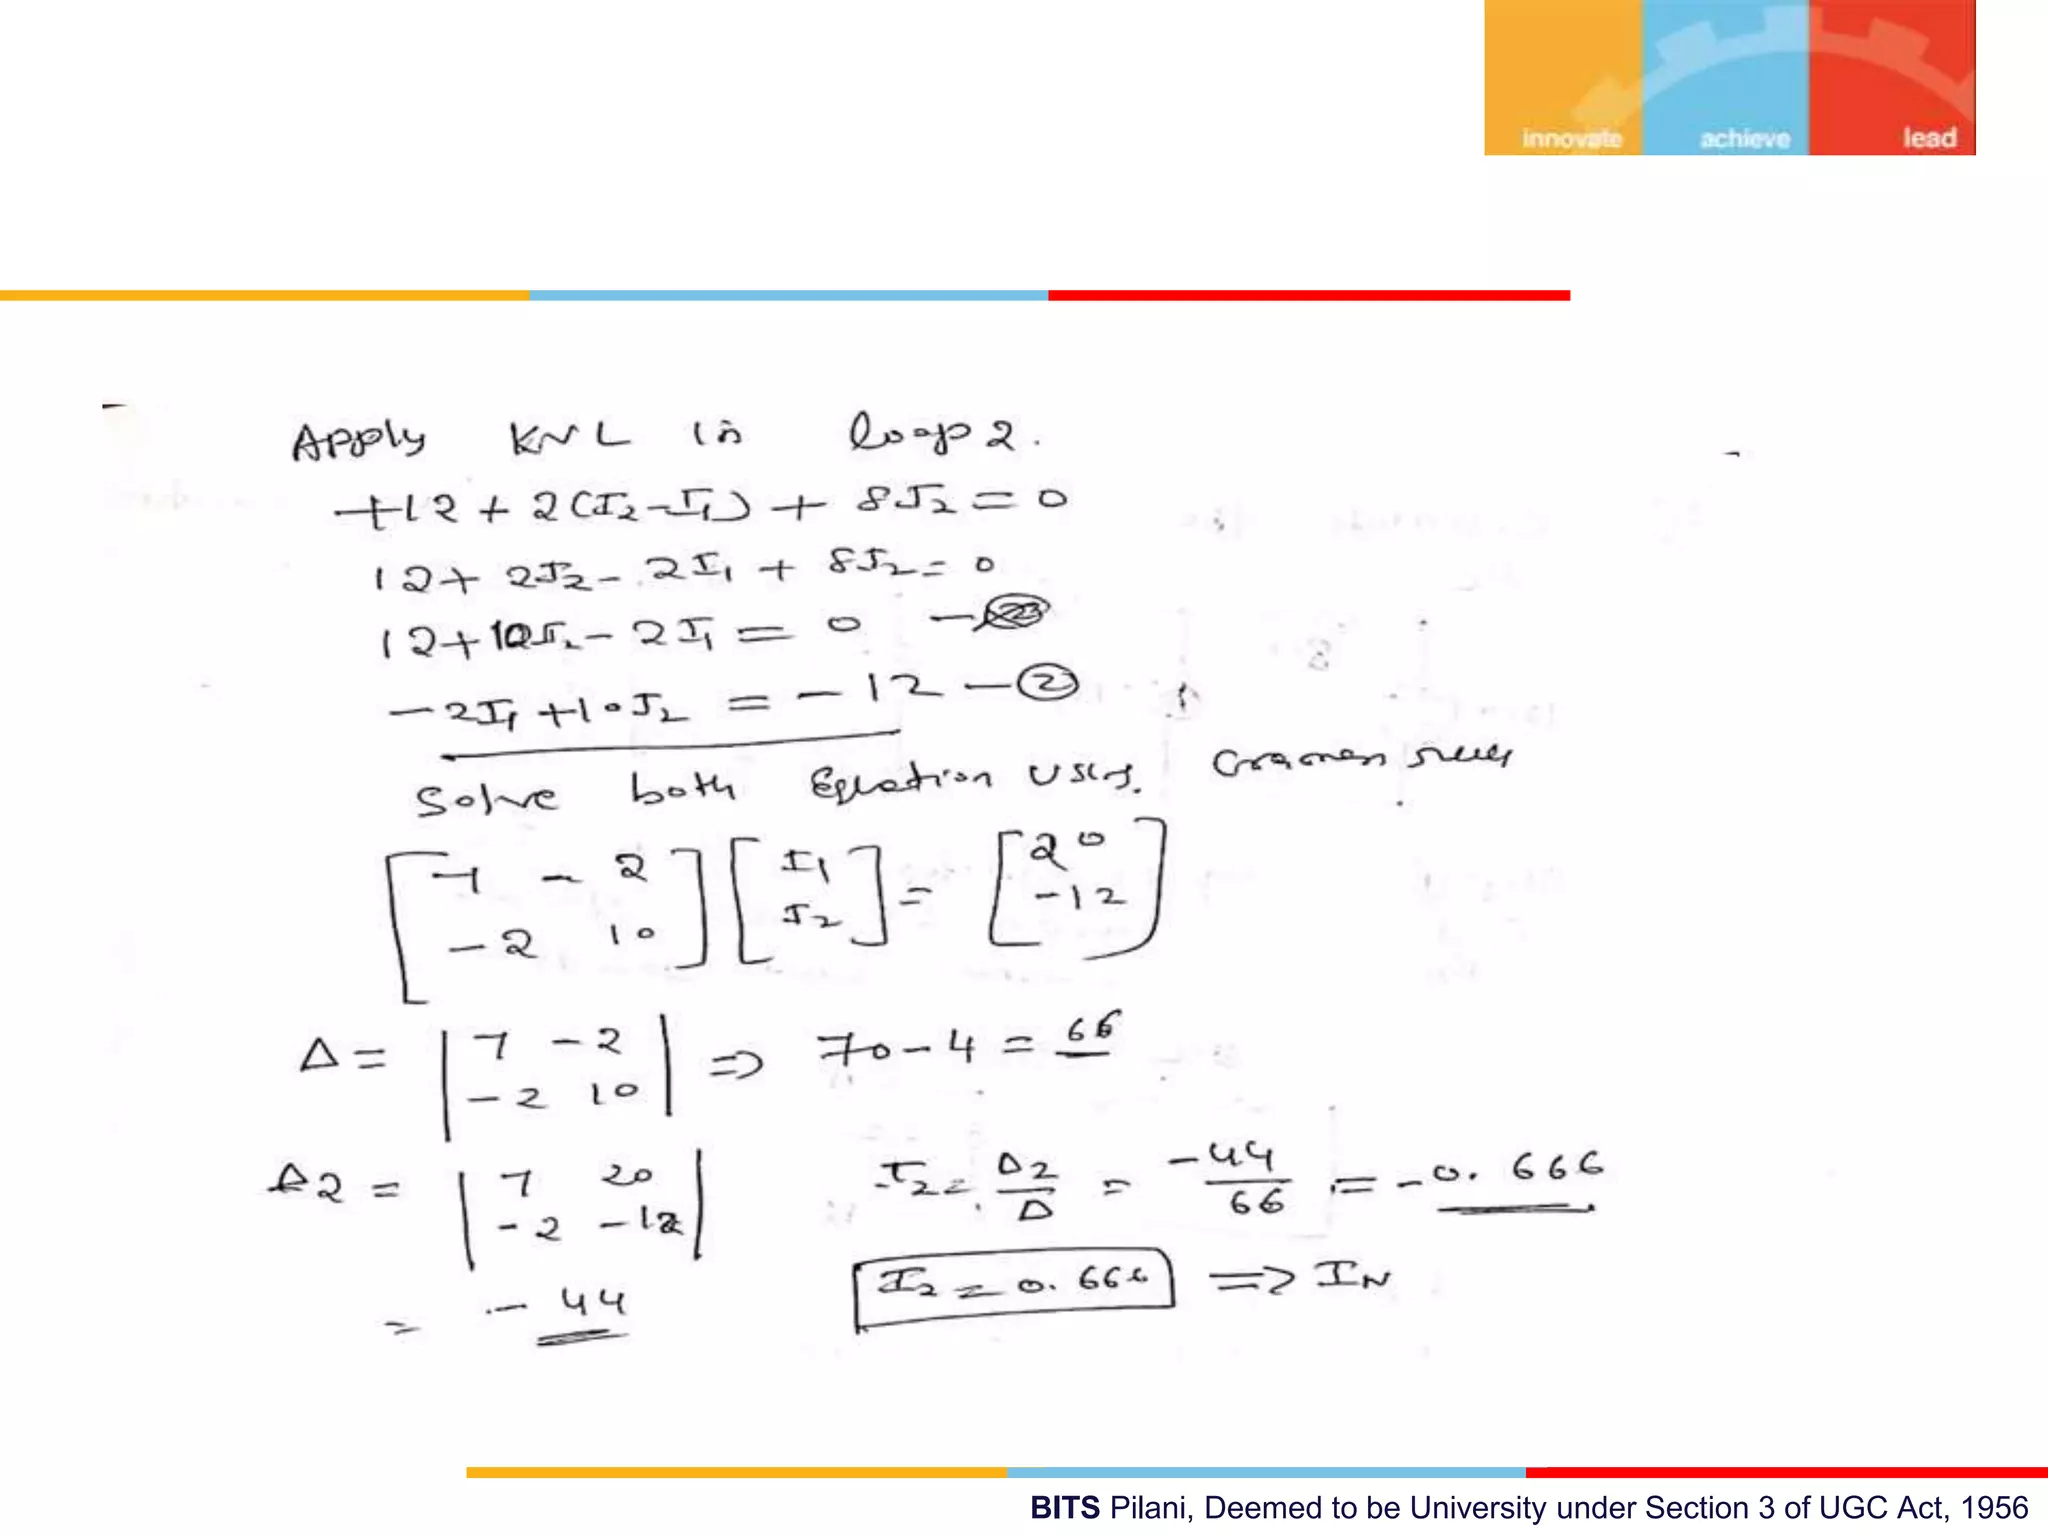 innovate achieve lead
Apply KVL in loop 2.
+12 + 2(I2-I1) + 8I2 = 0
12 + 2I2 - 2I1 + 8I2 = 0
12 + 10I2 - 2I1 = 0 -
-2I1 + 10I2 = -12 - ②
Solve both Equation using. Cramers rule
[7 -2; -2 10] [I1; I2] = [20; -12]
Δ = |7 -2; -2 10| => 70 - 4 = 66
Δ2 = |7 20; -2 -12| I2 = Δ2/Δ = -44/66 = -0.666
= -44
I2 = 0.666 => IN
BITS Pilani, Deemed to be University under Section 3 of UGC Act, 1956